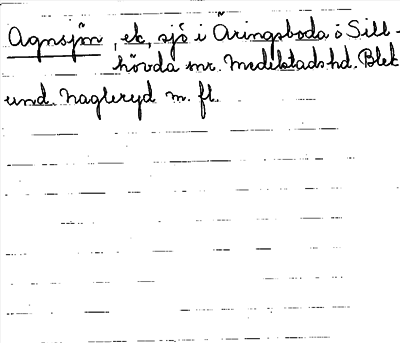 Agnsjön, ek, sjö i Äringsboda ö Sill-
hövda sn. Medelstads hd. Blek
und. Nagleryd m. fl.